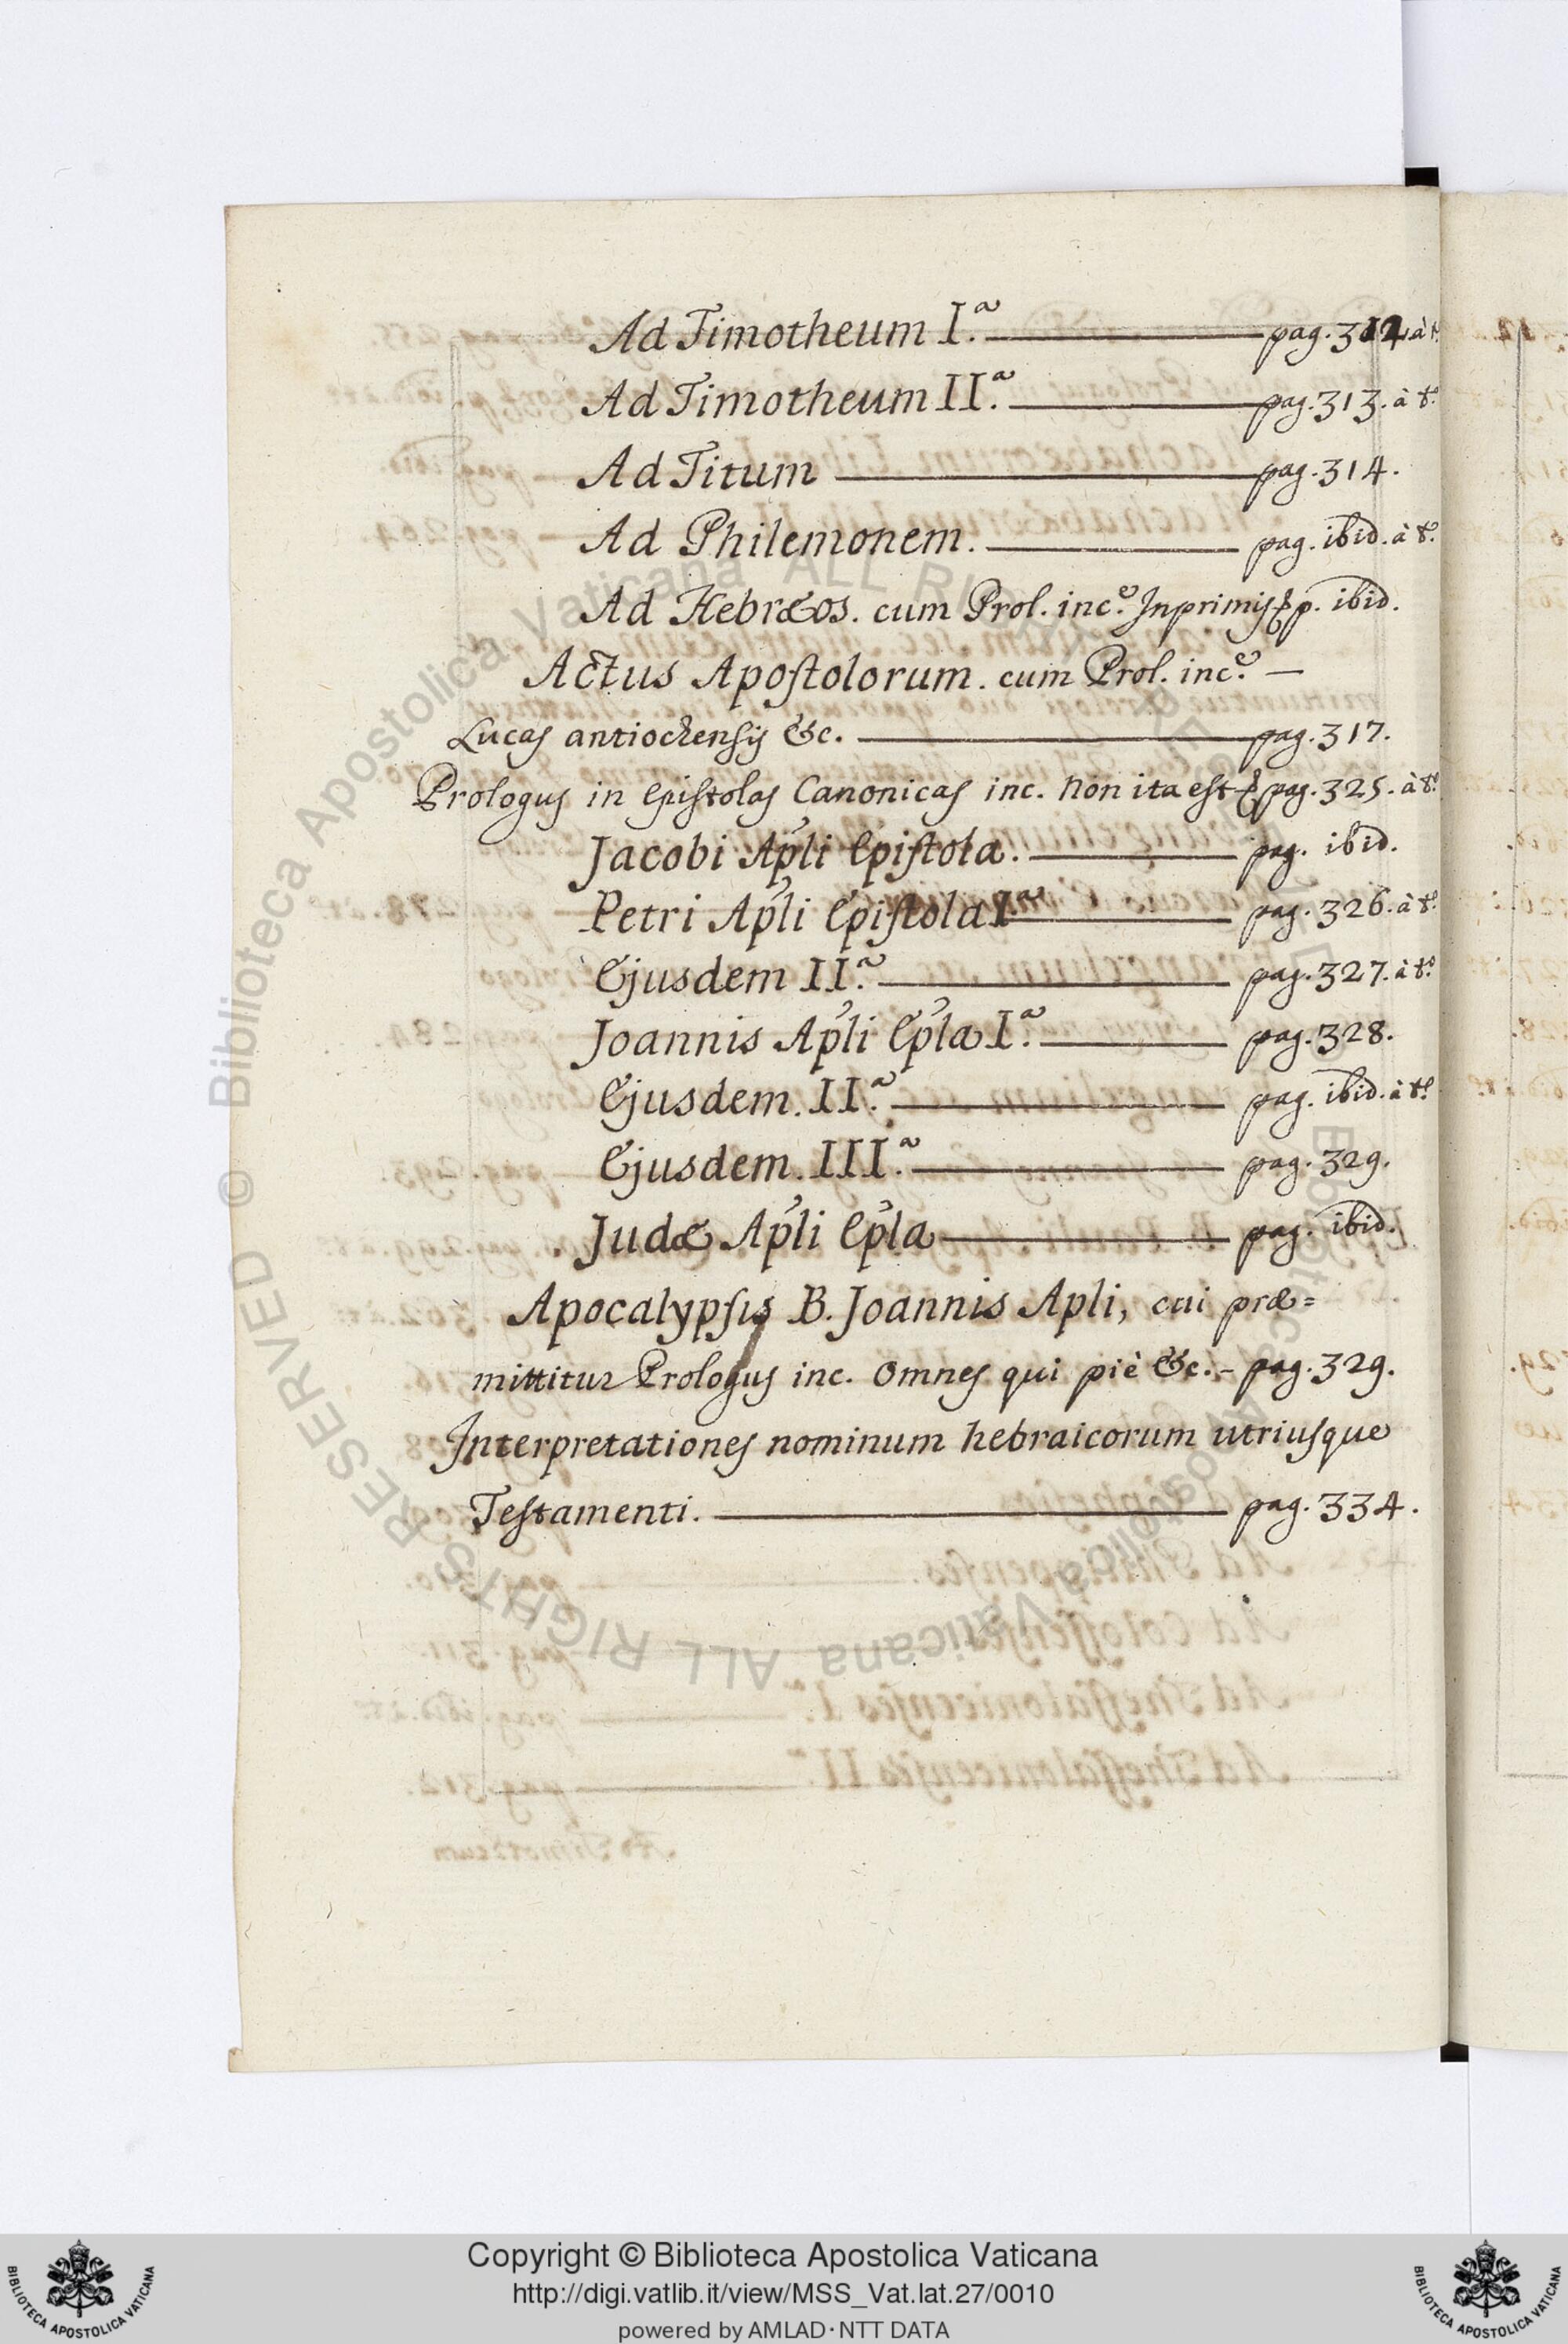 Ad Timotheum I.ª pag. 312. à t.
Ad Timotheum II.ª pag. 313. à t.º
Ad Titum pag. 314.
Ad Philemonem. pag. ibid. à t.º
Ad Hebræos. cum Prol. inc.e Inprimis &c p. ibid.
Actus Apostolorum. cum Prol. inc.e —
Lucas antiochensis &c. pag. 317.
Prologus in epistolas Canonicas inc. non ita est &c pag. 325. à t.º
Jacobi Apli Epistola. pag. ibid.
Petri Apli Epistola I.ª pag. 326. à t.º
Ejusdem II.ª pag. 327. à t.º
Joannis Apli Epla I.ª pag. 328.
Ejusdem. II.ª pag. ibid. à t.º
Ejusdem. III.ª pag. 329.
Judæ Apli Epla pag. ibid.
Apocalypsis B. Joannis Apli, cui præ=
mittitur Prologus inc. Omnes qui piè &c. - pag. 329.
Interpretationes nominum hebraicorum utriusque
Testamenti. pag. 334.
© Biblioteca Apostolica Vaticana ALL RIGHTS RESERVED
Copyright © Biblioteca Apostolica Vaticana
http://digi.vatlib.it/view/MSS_Vat.lat.27/0010
powered by AMLAD·NTT DATA
BIBLIOTECA APOSTOLICA VATICANA
BIBLIOTECA APOSTOLICA VATICANA